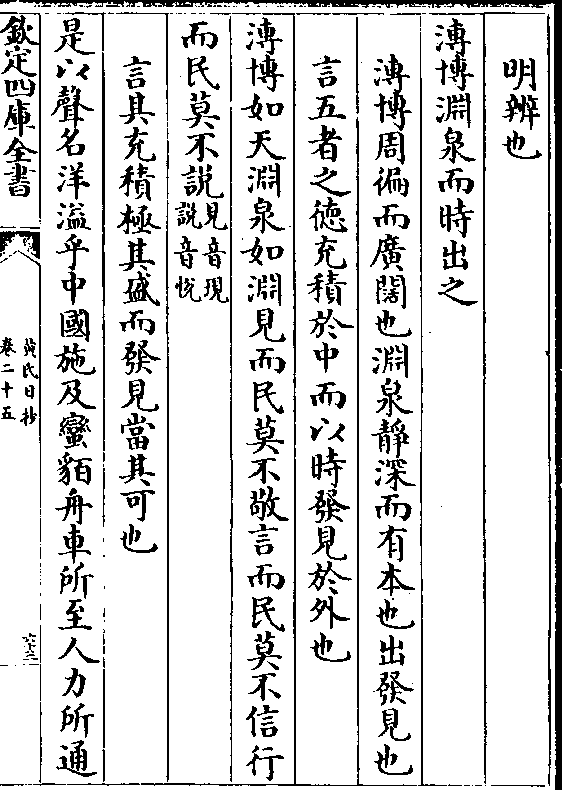 明辨也
溥博淵泉而時出之
溥博周徧而廣闊也淵泉靜深而有本也出發見也
言五者之德充積於中而以時發見於外也
溥博如天淵泉如淵見而民莫不敬言而民莫不信行
而民莫不說見音現說音恱
言其充積極其盛而發見當其可也
是以聲名洋溢乎中國施及蠻貊舟車所至人力所通
欽定四庫全書
黄氏日抄
卷二十五
六十三